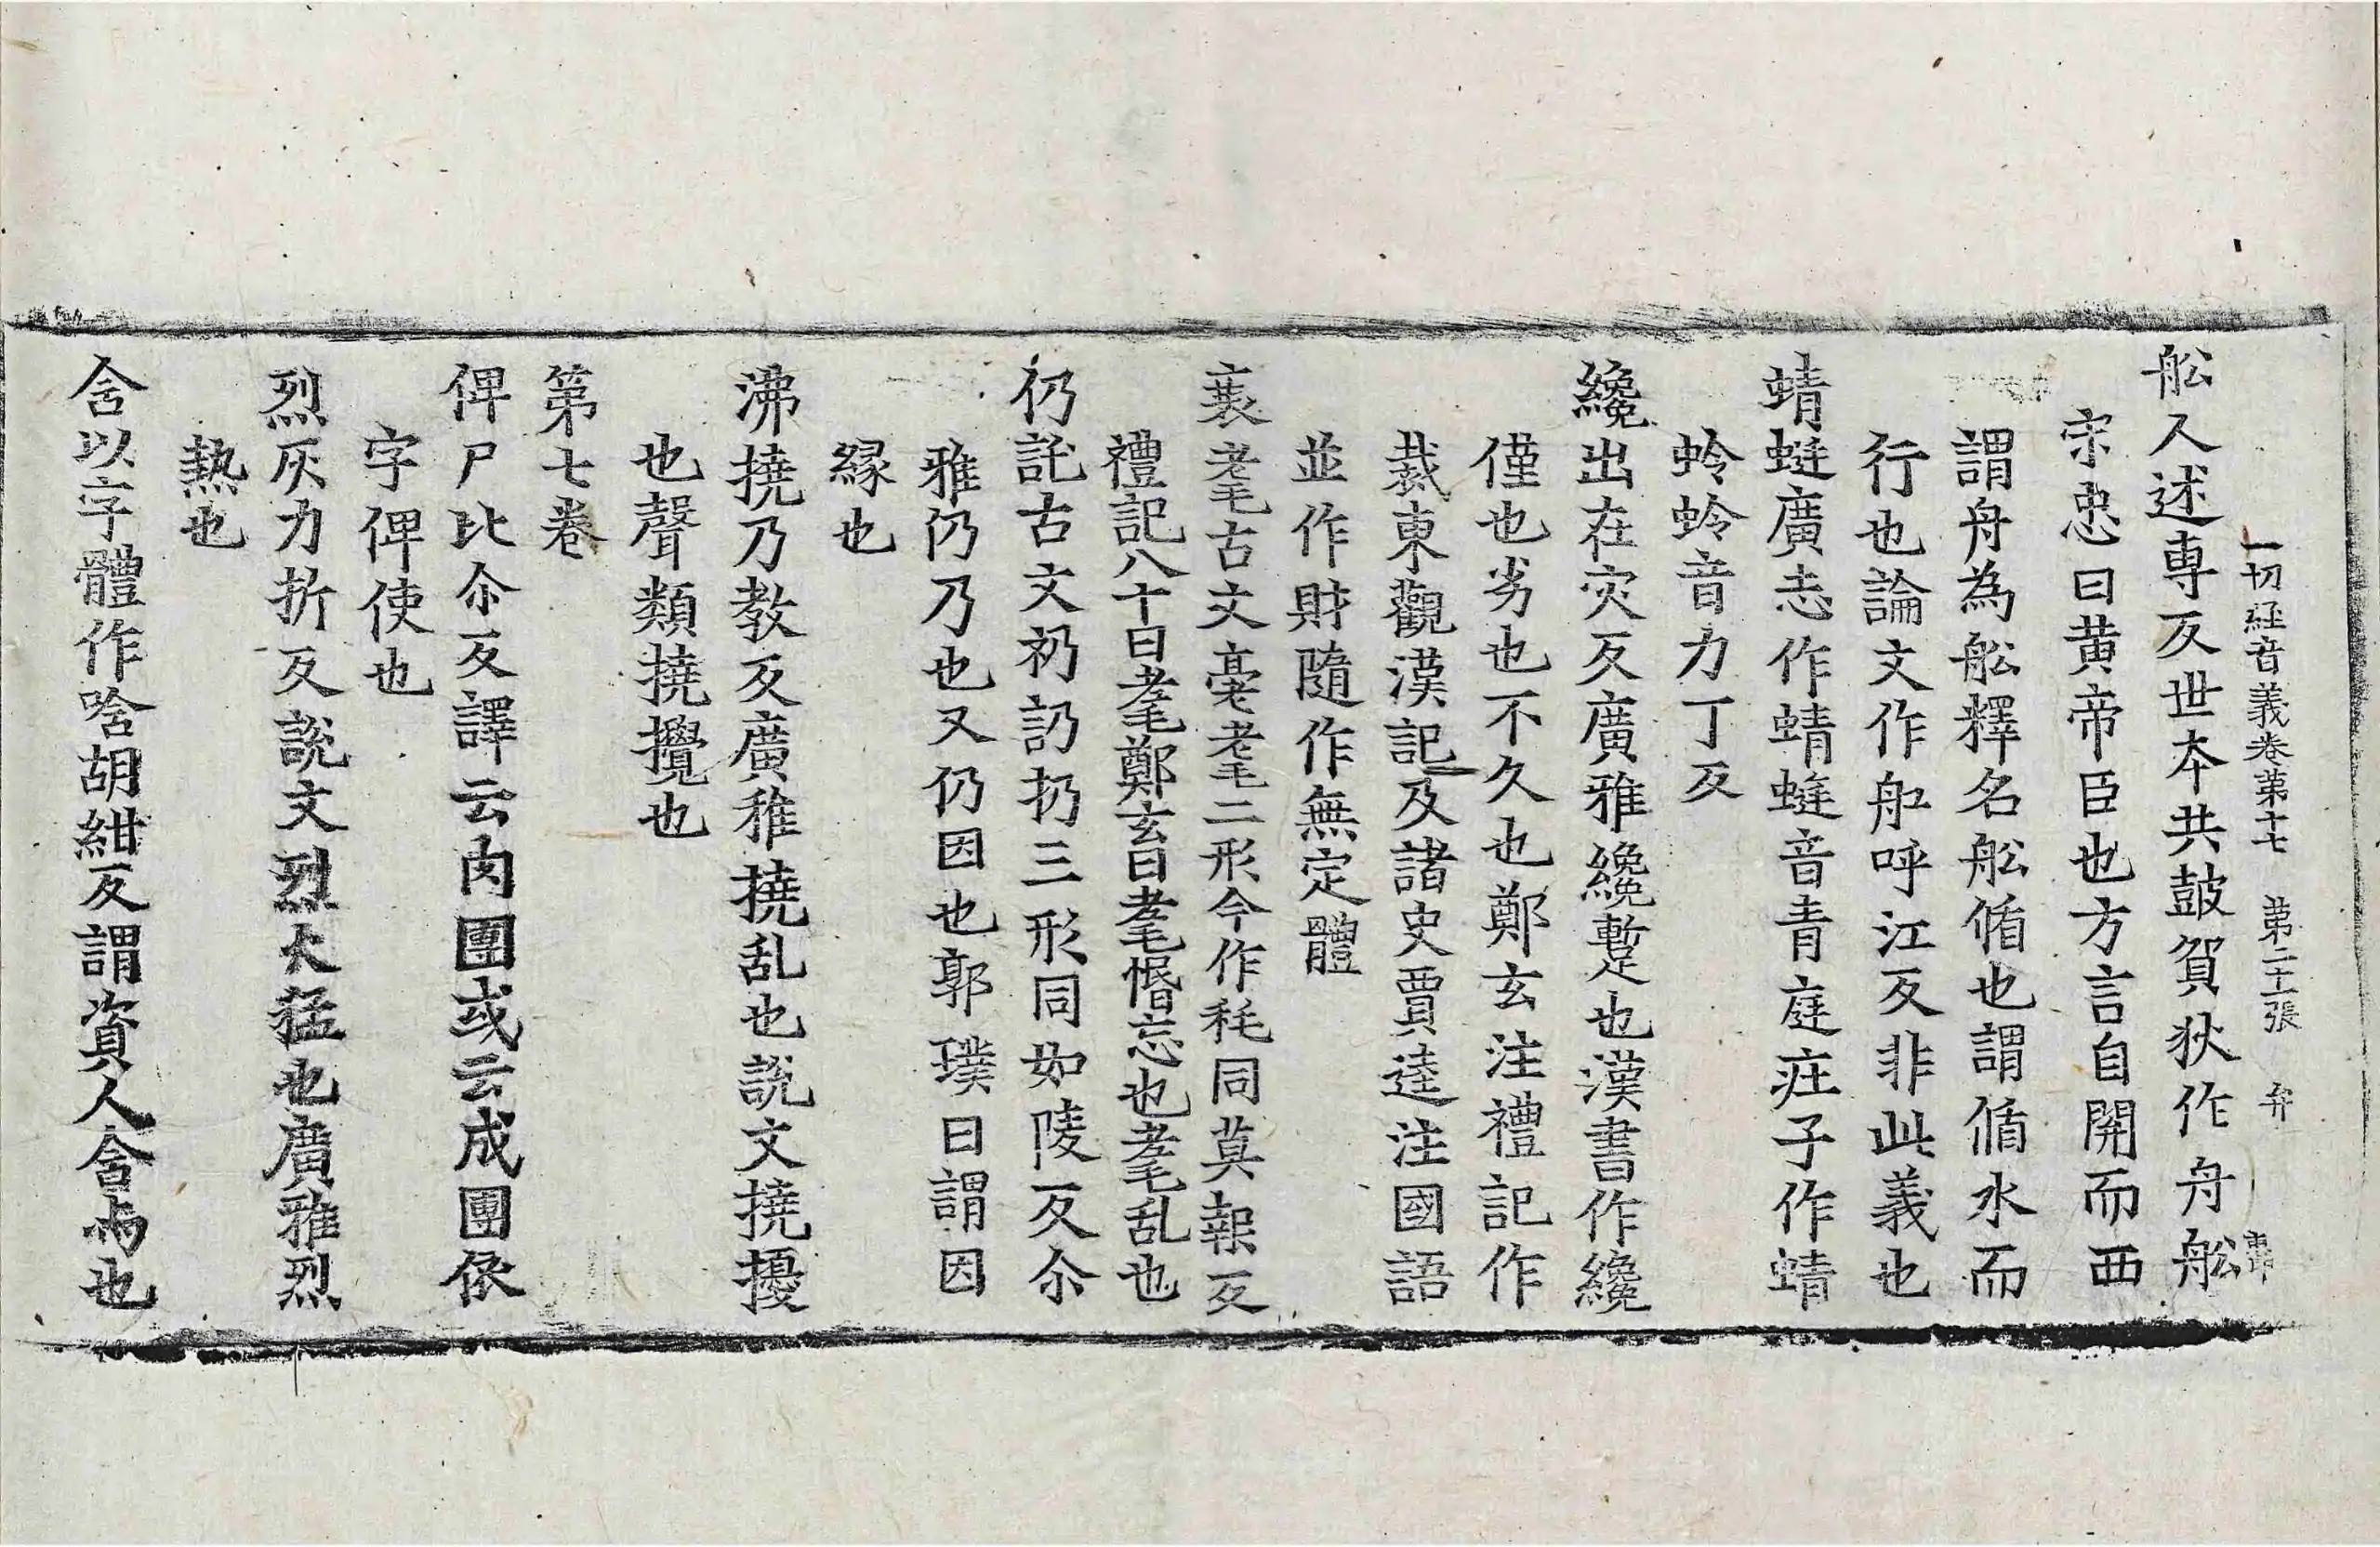 一切経音義卷第十七 第二十一張 弁
舩人述専反世夲共鼓貨狄作舟舩
宋忠曰黄帝臣也方言自關而西
謂舟為舩釋名舩循也謂循水而
行也論文作舡呼江反非此義也
蜻蜓廣志作蜻蜓音青庭庄子作蜻
蛉蛉音力丁反
纔出在灾反廣雅纔蹔也漢書作纔
僅也劣也不久也鄭玄注禮記作
裁東觀漢記及諸史賈逵注國語
並作財隨作無定體
衰耄古文耄耄二形今作秏同莫報反
禮記八十曰耄鄭玄曰耄惛忘也耄乱也
仍託古文礽訒扔三形同如陵反尒
雅仍乃也又仍因也郭璞曰謂因
緣也
沸撓乃教反廣雅撓乱也說文撓擾
也聲類撓攪也
第七卷
俾尸比尒反譯云肉團或云成團依
字俾使也
烈灰力折反說文烈火猛也廣雅烈
熱也
含以字體作唅胡紺反謂資人含肉也